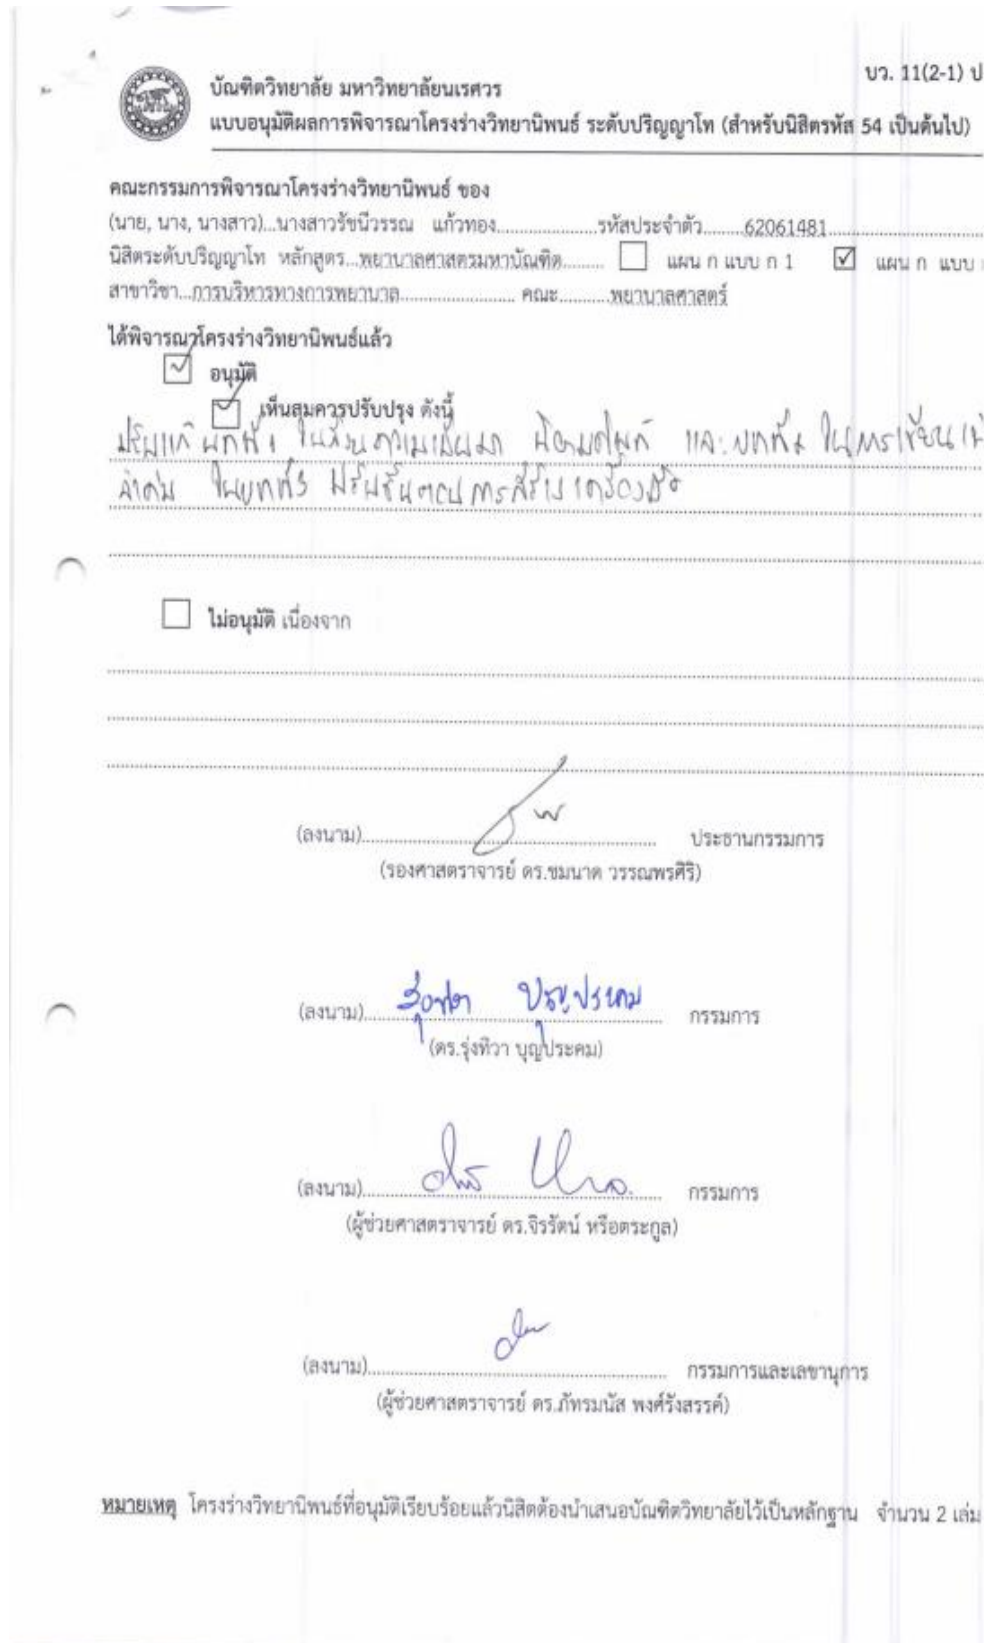 บว. 11(2-1) ป
บัณฑิตวิทยาลัย มหาวิทยาลัยนเรศวร
แบบอนุมัติผลการพิจารณาโครงร่างวิทยานิพนธ์ ระดับปริญญาโท (สำหรับนิสิตรหัส 54 เป็นต้นไป)
คณะกรรมการพิจารณาโครงร่างวิทยานิพนธ์ ของ
(นาย, นาง, นางสาว)...นางสาวรัชนีวรรณ แก้วทอง.....................รหัสประจำตัว........62061481................................
นิสิตระดับปริญญาโท หลักสูตร...พยาบาลศาสตรมหาบัณฑิต......... ☐ แผน ก แบบ ก 1 ☑ แผน ก แบบ
สาขาวิชา...การบริหารทางการพยาบาล........................ คณะ...........พยาบาลศาสตร์
ได้พิจารณาโครงร่างวิทยานิพนธ์แล้ว
☑ อนุมัติ
☑ เห็นสมควรปรับปรุง ดังนี้
ปรับแก้ บทที่ 1 ในส่วนความเป็นมา และบทที่ 2 ในการเขียน
ในบทที่ 3 ปรับขั้นตอนการสร้างเครื่องมือ
☐ ไม่อนุมัติ เนื่องจาก
(ลงนาม)................................................ ประธานกรรมการ
(รองศาสตราจารย์ ดร.ชมนาด วรรณพรศิริ)
(ลงนาม) รุ่งทิวา บุญประคม กรรมการ
(ดร.รุ่งทิวา บุญประคม)
(ลงนาม)................................................ กรรมการ
(ผู้ช่วยศาสตราจารย์ ดร.จิรรัตน์ หรือตระกูล)
(ลงนาม)................................................ กรรมการและเลขานุการ
(ผู้ช่วยศาสตราจารย์ ดร.ภัทรมนัส พงศ์รังสรรค์)
หมายเหตุ โครงร่างวิทยานิพนธ์ที่อนุมัติเรียบร้อยแล้วนิสิตต้องนำเสนอบัณฑิตวิทยาลัยไว้เป็นหลักฐาน จำนวน 2 เล่ม